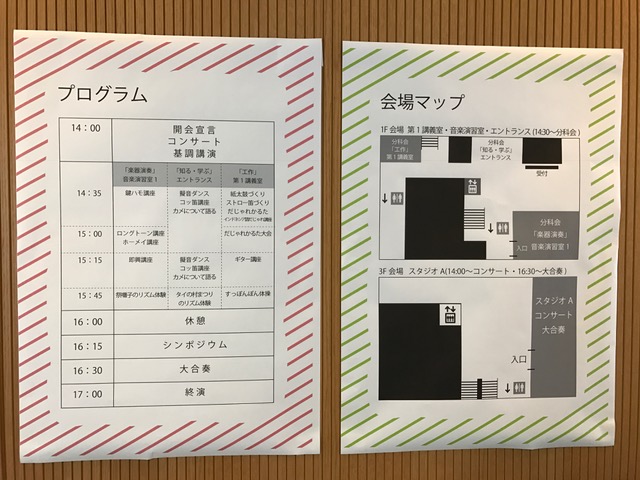 プログラム
14：00
開会宣言
コンサート
基調講演
「楽器演奏」
音楽演習室1
「知る・学ぶ」
エントランス
「工作」
第1講義室
14：35
鍵ハモ講座
擬音ダンス
コッ笛講座
カメについて語る
紙太鼓づくり
ストロー笛づくり
だじゃれかるた
インドネシア語だじゃれ講座
15：00
ロングトーン講座
ホーメイ講座
だじゃれかるた大会
15：15
即興講座
擬音ダンス
コッ笛講座
カメについて語る
ギター講座
15：45
祭囃子のリズム体験
タイの村まつり
のリズム体験
すっぽんぽん体操
16：00
休憩
16：15
シンポジウム
16：30
大合奏
17：00
終演
会場マップ
1F 会場 第1講義室・音楽演習室・エントランス (14:30〜分科会)
分科会
「工作」
第1講義室
分科会
「知る・学ぶ」
エントランス
受付
分科会
「楽器演奏」
音楽演習室1
入口
3F 会場 スタジオA(14:00〜コンサート・16:30〜大合奏)
スタジオA
コンサート
大合奏
入口